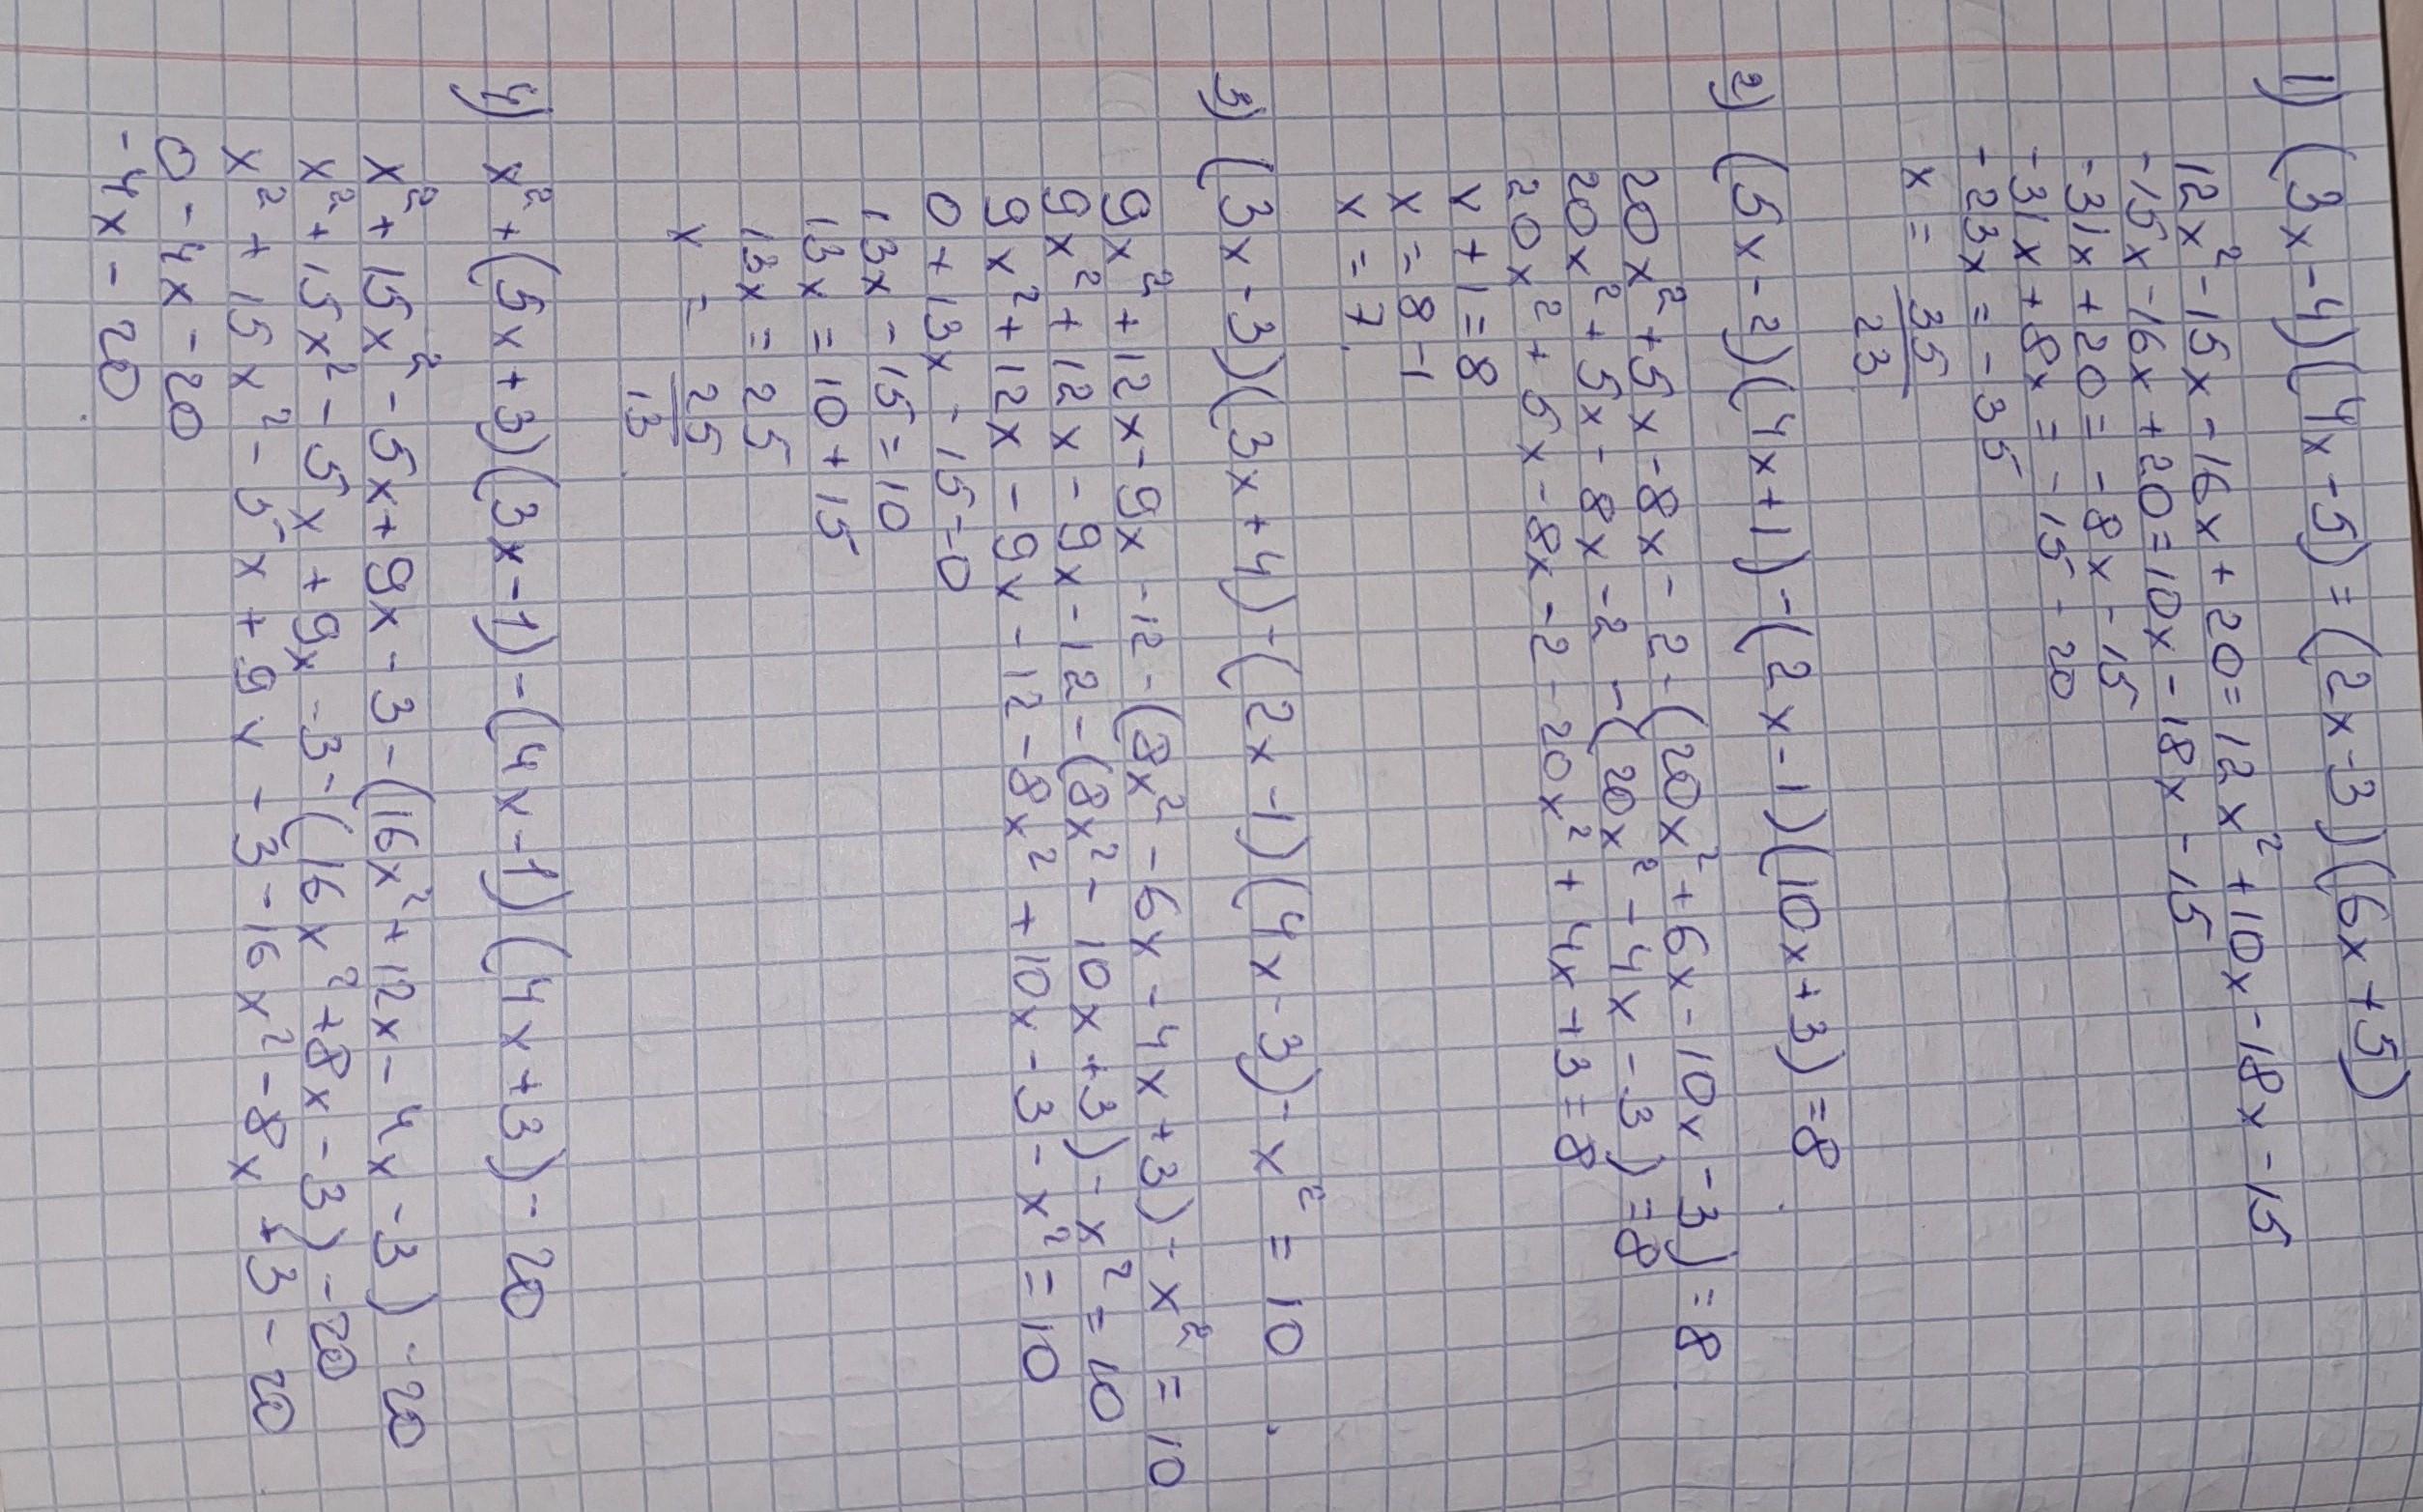 1) (3x-4)(4x-5) = (2x-3)(6x+5)
12x²-15x-16x+20=12x²+10x-18x-15
-15x-16x+20=10x-18x-15
-31x+20=-8x-15
-31x+8x=-15-20
-23x=-35
x= 35/23
2) (5x-2)(4x+1)-(2x-1)(10x+3)=8
20x²+5x-8x-2-(20x²+6x-10x-3)=8
20x²+5x-8x-2-(20x²-4x-3)=8
20x²+5x-8x-2-20x²+4x+3=8
x+1=8
x=8-1
x=7
3) (3x-3)(3x+4)-(2x-1)(4x-3)-x²=10
9x²+12x-9x-12-(8x²-6x-4x+3)-x²=10
9x²+12x-9x-12-(8x²-10x+3)-x²=10
9x²+12x-9x-12-8x²+10x-3-x²=10
0+13x-15=0
13x-15=10
13x=10+15
13x=25
x= 25/13
4) x²+(5x+3)(3x-1)-(4x-1)(4x+3)-20
x²+15x²-5x+9x-3-(16x²+12x-4x-3)-20
x²+15x²-5x+9x-3-(16x²+8x-3)-20
x²+15x²-5x+9x-3-16x²-8x+3-20
0-4x-20
-4x-20